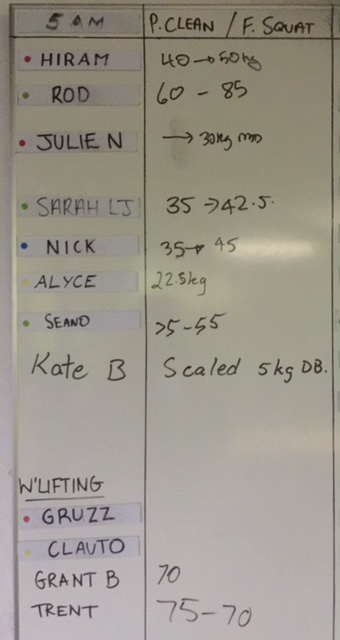 5 AM P.CLEAN / F. SQUAT
HIRAM 40→50kg
ROD 60 - 85
JULIE N → 30kg
SARAH LJ 35 →42.5.
NICK 35→ 45
ALYCE 22.5kg
SEANO 35-55
Kate B Scaled 5kg DB.
W'LIFTING
GRUZZ
CLAUTO
GRANT B 70
TRENT 75-70